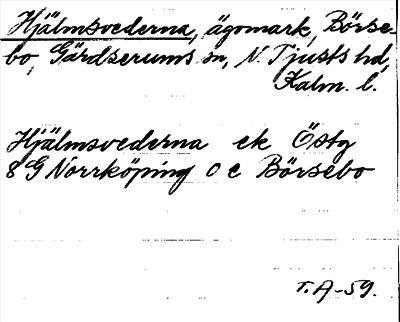 Hjälmsvederna, ägomark, Börse-
bo, Gärdserums sn, N. Tjusts hd,
Kalm. l.
Hjälmsvederna ek Östg
8 G Norrköping o e Börsebo
T.A-59.